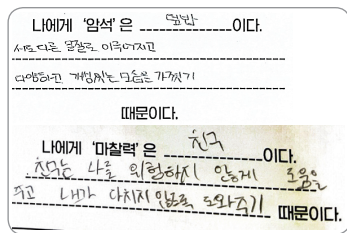 나에게 '암석'은 덮밥이다.
서로 다른 물질로 이루어지고
다양하고 개성있는 모습을 가졌기
때문이다.
나에게 '마찰력'은 친구이다.
친구는 나를 위험하지 않게 도움을
주고 내가 다치지 않도록 도와주기 때문이다.